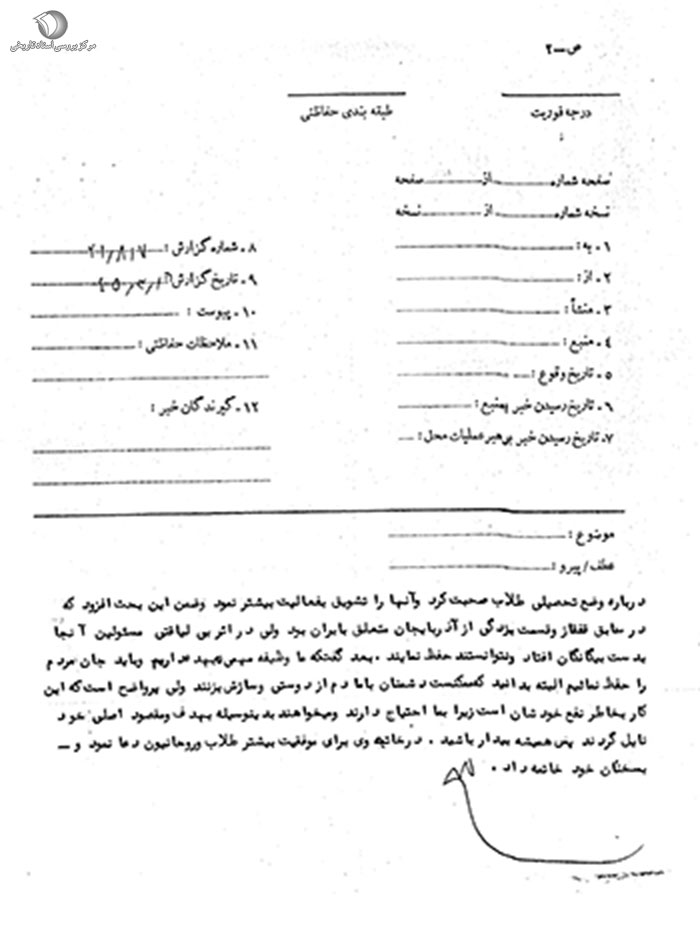 مرکز بررسی اسناد تاریخی
ص ــ ۲
طبقه بندی حفاظتی
درجه فوریت
صفحه شماره از صفحه
نسخه شماره از نسخه
۱ـ به :
۲ـ از :
۳ـ منشأ :
۴ـ منبع :
۵ـ تاریخ وقوع :
۶ـ تاریخ رسیدن خبر بمنبع :
۷ـ تاریخ رسیدن خبر برهبر عملیات محل :
۸ـ شماره گزارش :
۹ـ تاریخ گزارش
۱۰ـ پیوست :
۱۱ـ ملاحظات حفاظتی :
۱۲ـ گیرندگان خبر :
موضوع :
عطف / پیرو :
درباره وضع تحصیلی طلاب صحبت کرد وآنها را تشویق بفعالیت بیشتر نمود وضمن این بحث افزود که
در سابق قفقاز وقسمت بزرگی از آذربایجان متعلق بایران بود ولی در اثر بی لیاقتی مسئولین آنجا
بدست بیگانگان افتاد ونتوانستند حفظ نمایند . بعد گفت که ما وظیفه داریم وباید جان مردم
را حفظ نمائیم البته بدانید که ممکنست دشمنان باما دم از دوستی وسازش بزنند ولی پرواضح است که این
کار بخاطر نفع خودشان است زیرا بما احتیاج دارند ومیخواهند بدینوسیله بهدف ومقصود اصلی خود
نایل گردند پس همیشه بیدار باشید . درخاتمه وی برای موفقیت بیشتر طلاب وروحانیون دعا نمود و ــ
بسخنان خود خاتمه داد .